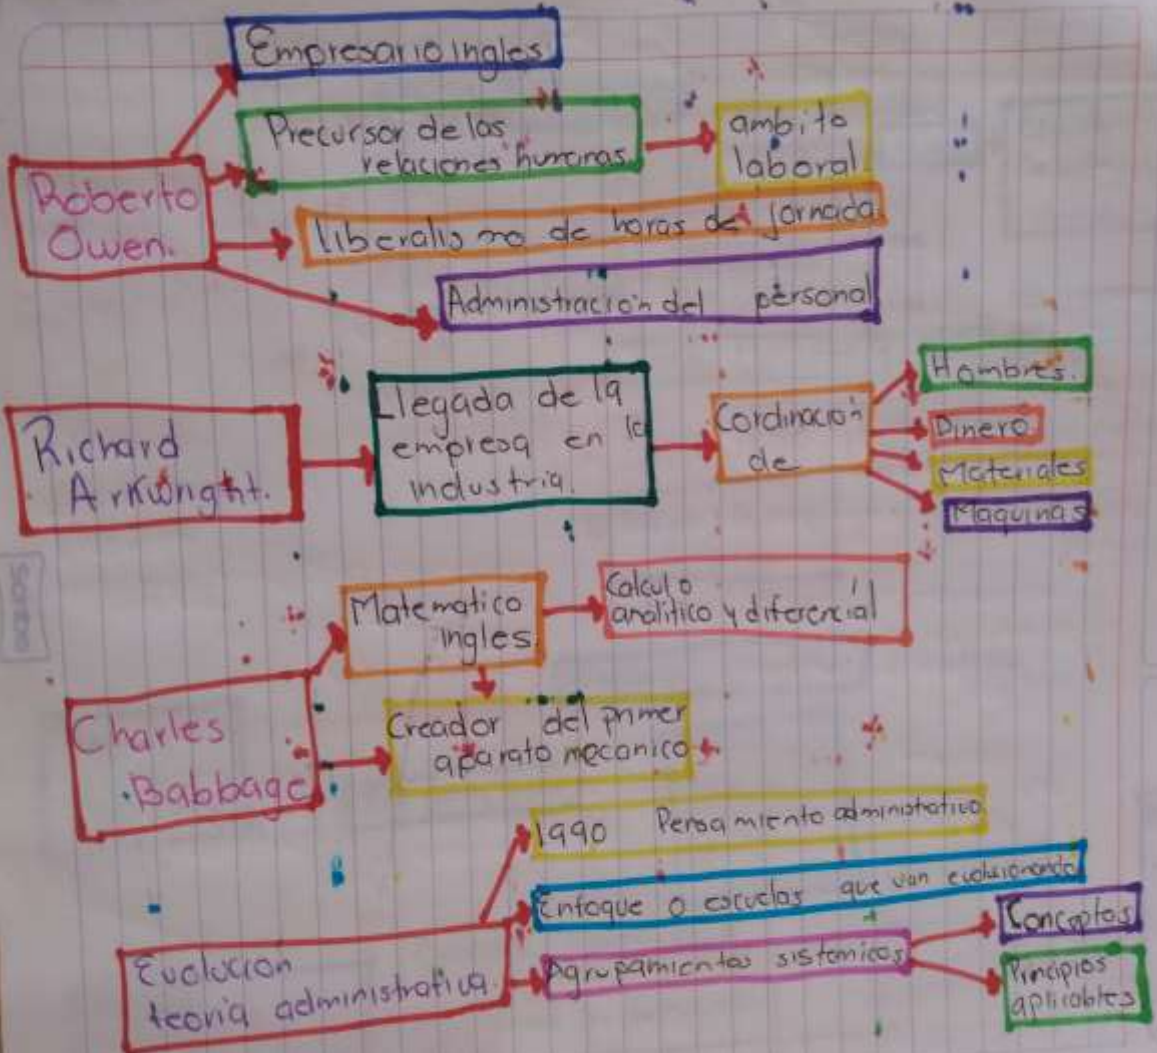 Empresario ingles
Precursor de las
relaciones humanas
ambito
laboral
Roberto
Owen.
liberalismo de horas de jornada
Administración del personal
Richard
Arkwright.
Llegada de la
empresa en la
industria.
Cordinación
de
Hombres.
Dinero
Materiales
Maquinas
Charles
Babbage
Matematico
ingles.
Calculo
analitico y diferencial
Creador del primer
aparato mecanico
Evolucion
teoria administrativa.
1990 Pensamiento administrativo
Enfoque o escuelas que van evolucionando
Agrupamientos sistemicos
Conceptos
Principios
aplicables
Scribe